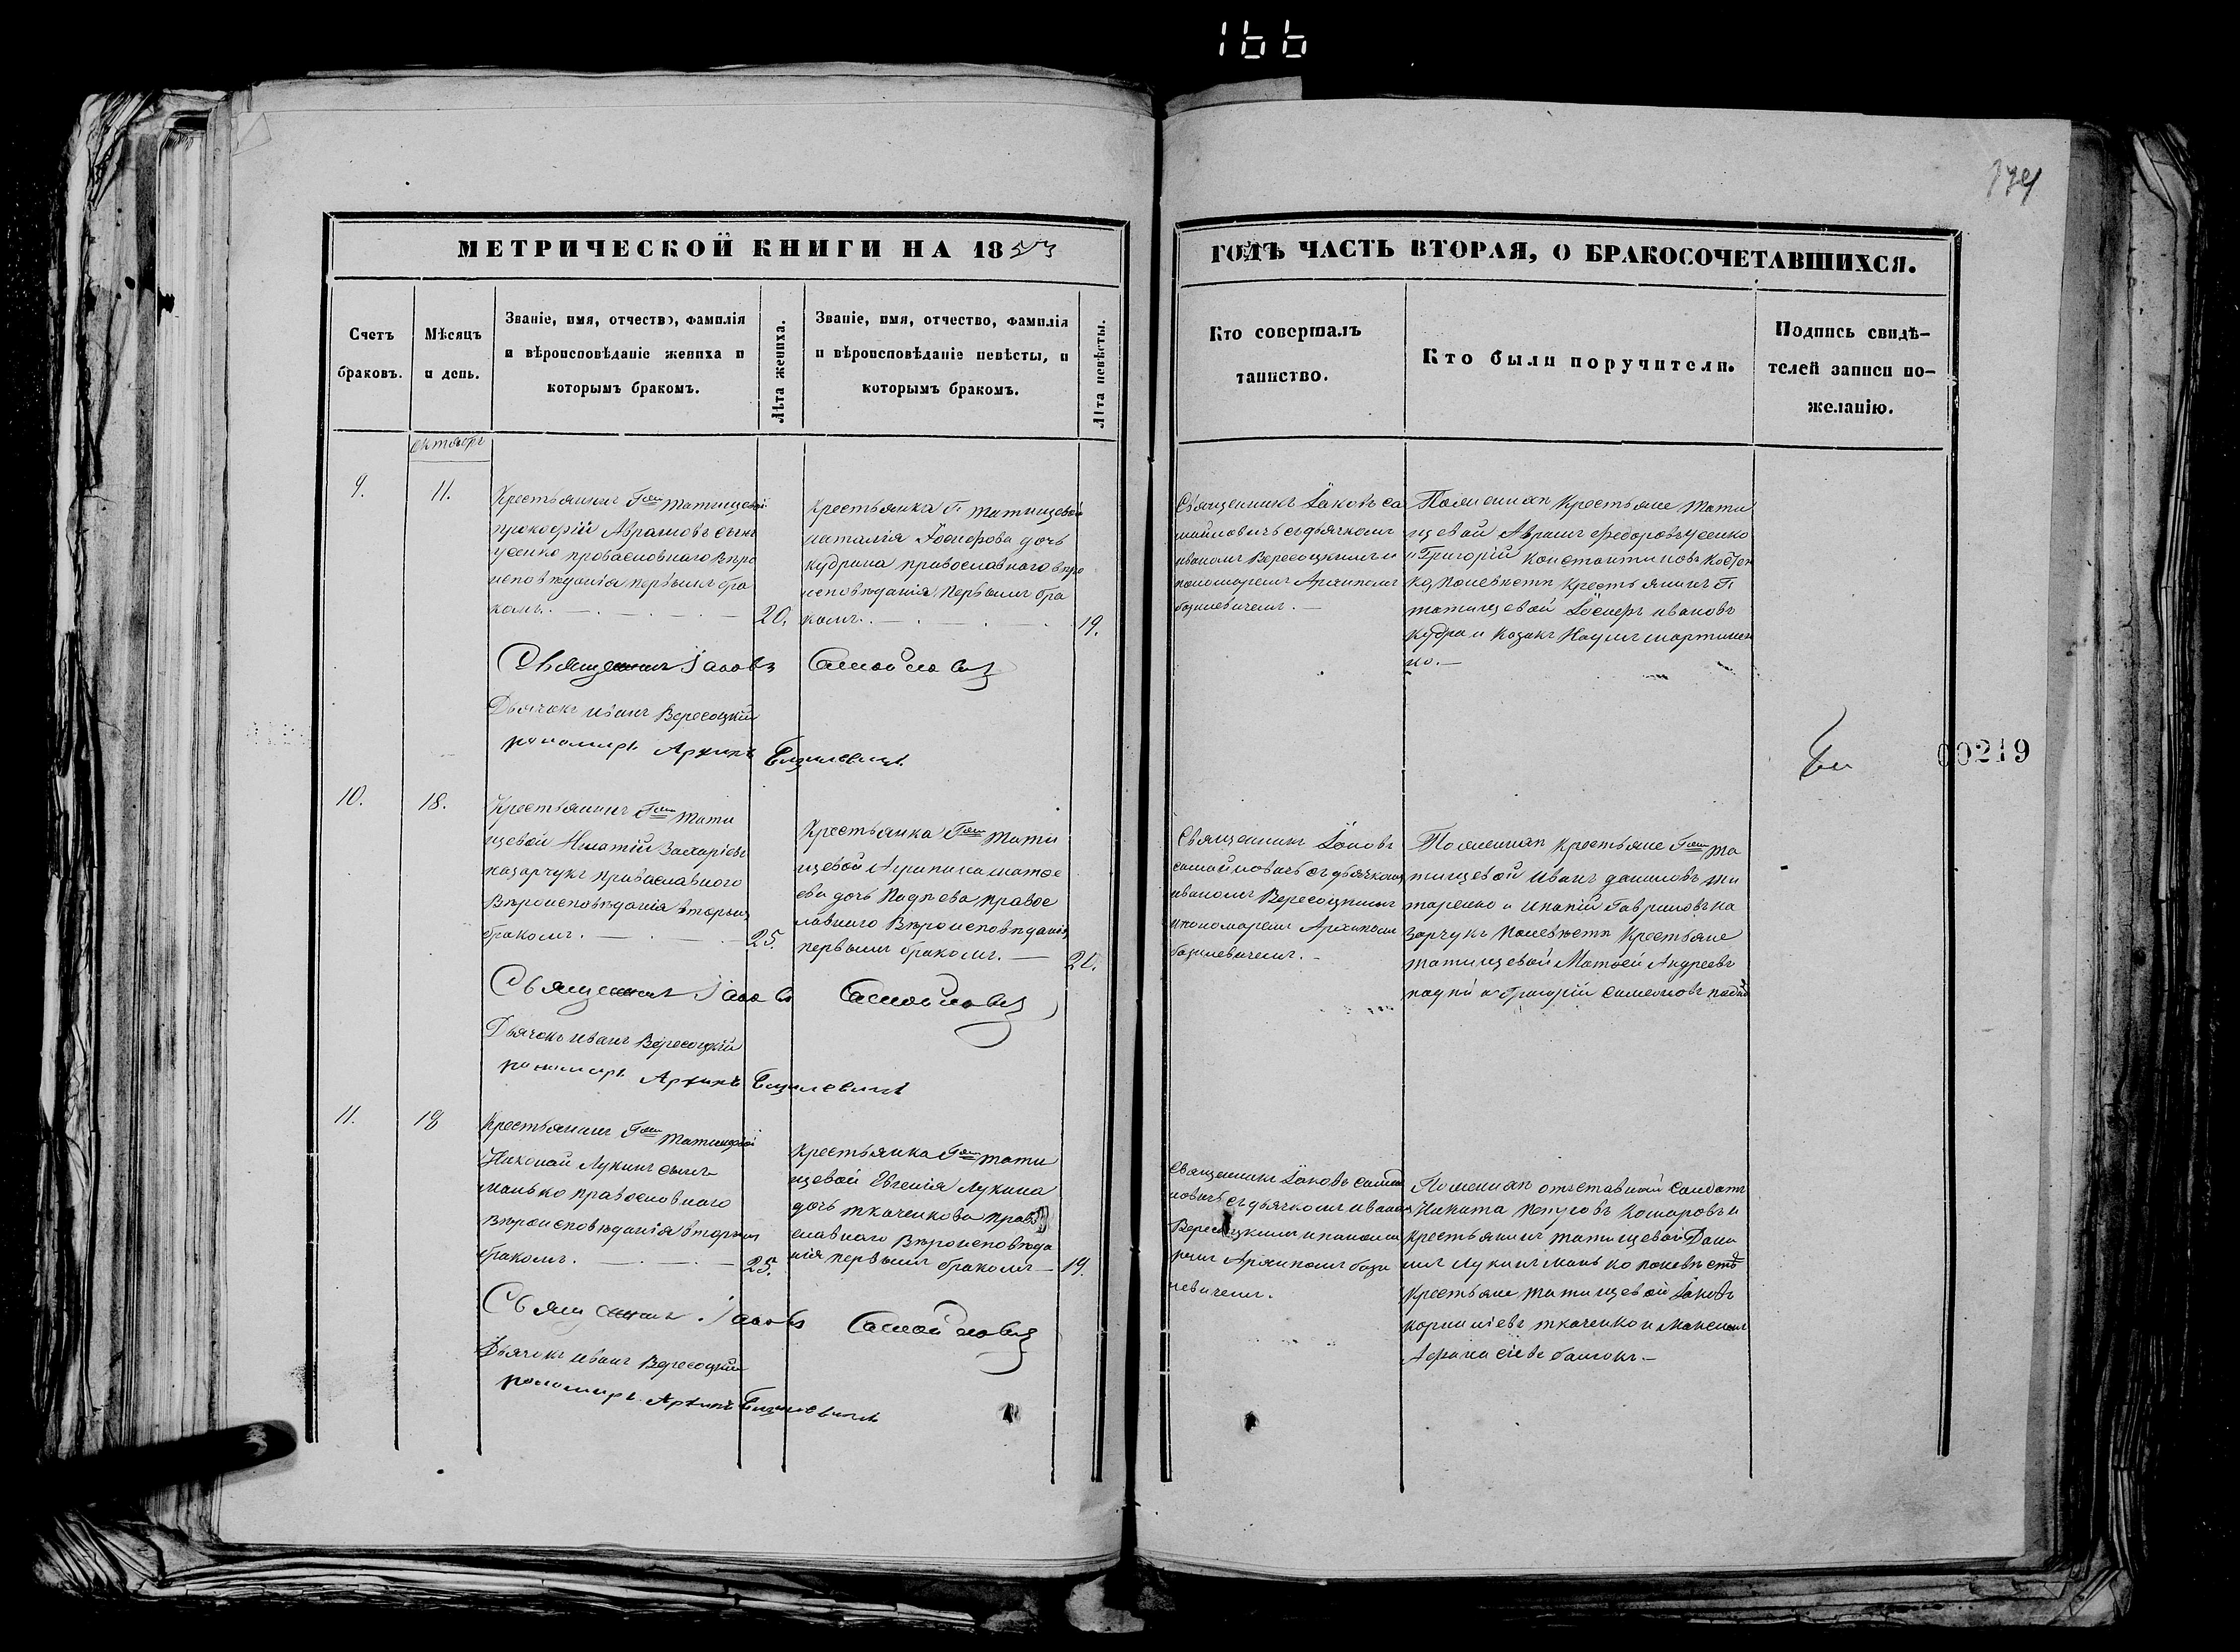 166
179
МЕТРИЧЕСКОЙ КНИГИ НА 1853
ГОДЪ ЧАСТЬ ВТОРАЯ, О БРАКОСОЧЕТАВШИХСЯ.
Счетъ
браковъ.
Мѣсяцъ
и день.
Званіе, имя, отчество, фамилія
и вѣроисповѣданіе жениха и
которымъ бракомъ.
Лѣта жениха.
Званіе, имя, отчество, фамилія
и вѣроисповѣданіе невѣсты, и
которымъ бракомъ.
Лѣта невѣсты.
Кто совершалъ
таинство.
Кто были поручители.
Подпись свидѣ-
телей записи по-
желанію.
октябрь
9.
11.
Крестьянинъ Гжи Татищевой
прокофій Аврамовъ сынъ
усенко православнаго вѣро
исповѣданія первымъ бра
комъ. —
20.
Крестьянка Г. татищевой
наталія Іосифова дочь
кудрина православнаго вѣро
исповѣданія первымъ бра
комъ. —
19.
Священникъ Іаковъ са
мойловичъ съ дьячкомъ
иваномъ Вересоцкимъ и
пономаремъ Архипомъ
базилевичемъ. —
По женихѣ крестьяне Тати
щевой Аврамъ федоровъ усенко
и Григорій константиновъ
ка, по невѣстѣ крестьянинъ Г.
татищевой Іосифъ ивановъ
кудра и козакъ Наумъ мартинен
ко. —
Священникъ Іаковъ Самойловичъ
Дьячокъ иванъ Вересоцкій
пономарь Архипъ Базилевичъ
00219
10.
18.
Крестьянинъ Гжи Тати
щевой Игнатій Захаріевъ
назарчукъ православного
вѣроисповѣданія вторымъ
бракомъ. —
25.
Крестьянка Гжи Тати
щевой Агрипина матѳе
ева дочь православнаго вѣроисповѣданія
первымъ бракомъ. —
21.
Священникъ Іаковъ
самойловичъ съ дьячкомъ
иваномъ Вересоцкимъ
и пономаремъ Архипомъ
базилевичемъ. —
По женихѣ крестьяне Гжи та
тищевой иванъ даниловъ ти
таренко и ипатій Гавриловъ на
зарчукъ по невѣстѣ крестьяне
татищевой Матѳей Андреевъ
и григорій симеоновъ
Священникъ Іаковъ Самойловичъ
Дьячокъ иванъ Вересоцкій
пономарь Архипъ Базилевичъ
11.
18
Крестьянинъ Гжи Татищевой
Николай Лукинъ сынъ
манько православнаго
вѣроисповѣданія вторымъ
бракомъ. —
25.
Крестьянка Гжи тати
щевой Евгенія Лукина
дочь ткаченкова право
славнаго вѣроисповѣда
нія первымъ бракомъ —
19.
Священникъ Іаковъ самой
ловичъ съ дьячкомъ иваномъ
Вересоцкимъ и понома
ремъ Архипомъ бази
левичемъ.
По женихѣ отставной солдатъ
Никита комаровъ и
крестьянинъ татищевой Дани
илъ Лукинъ манько по невѣстѣ
крестьяне татищевой Іаковъ
корниліевъ ткаченко и максимъ
Афанасіевъ —
Священникъ Іаковъ Самойловичъ
Дьячокъ иванъ Вересоцкій
пономарь Архипъ Базилевичъ